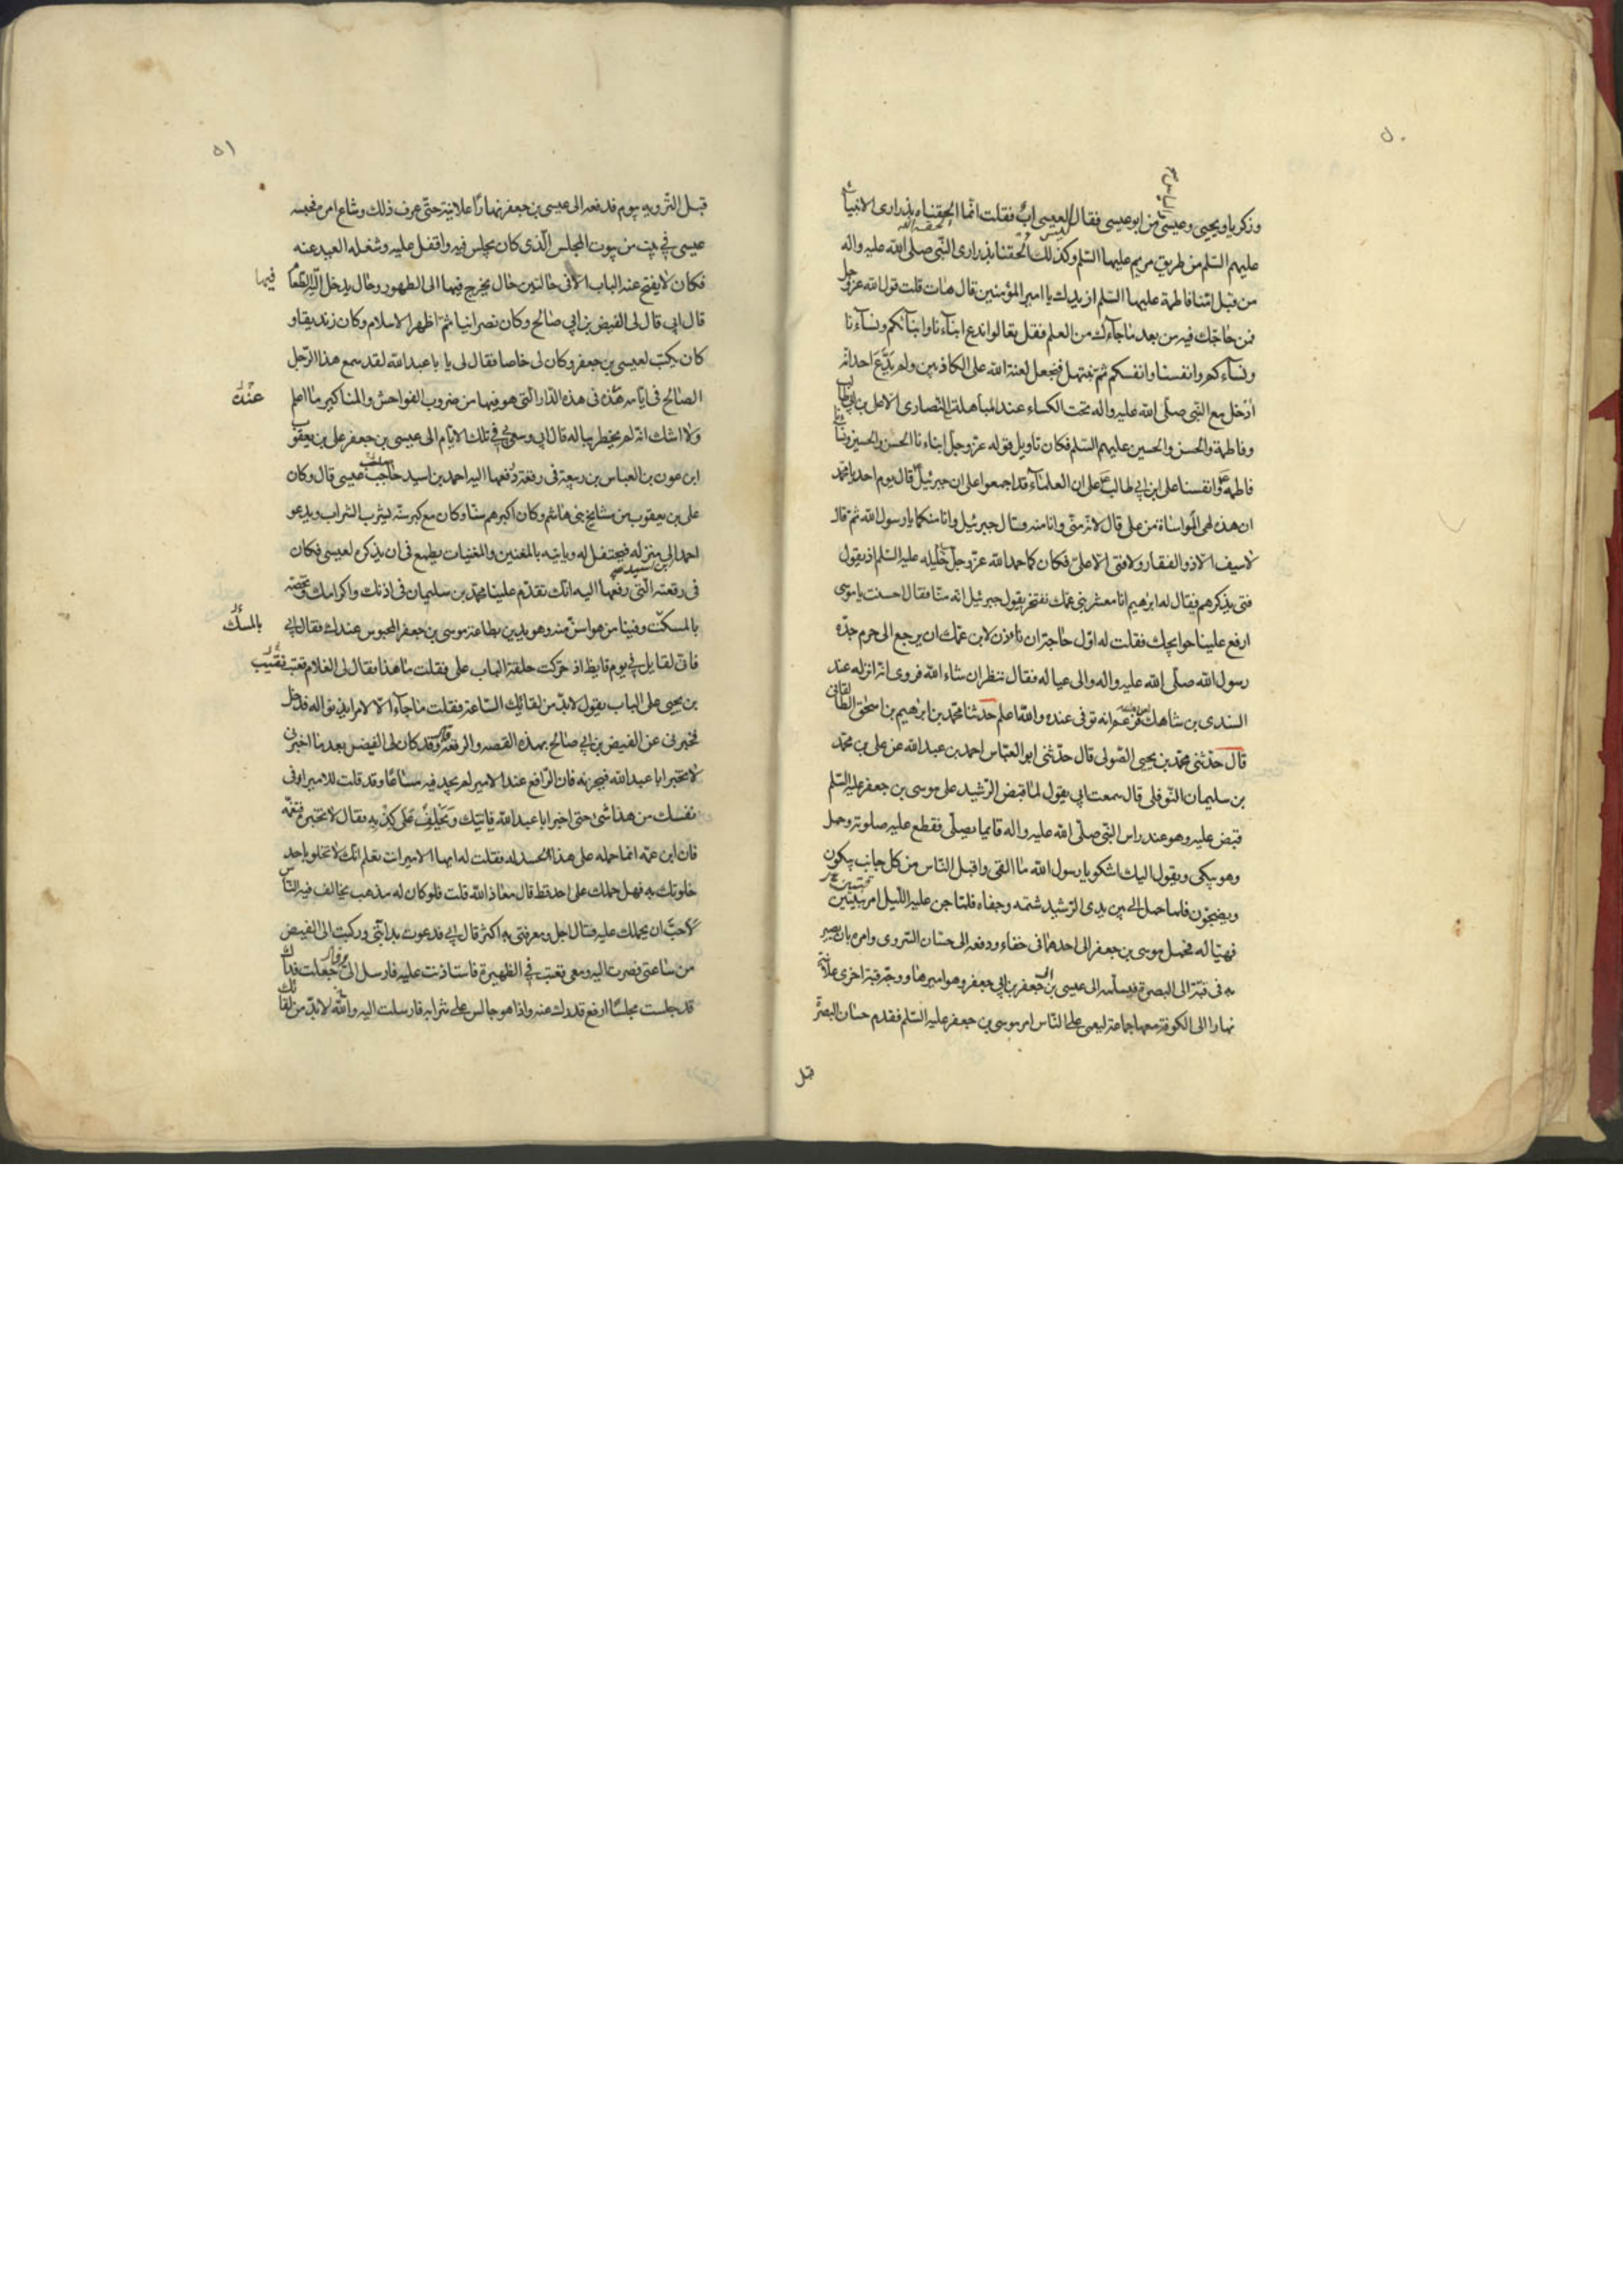 ٥٠
وزكريا ويحيى وعيسى من ابو عيسى فقال ليس لعيسى اب فقلت انما الحقناه بذراري الانبياء
عليهم السلم من طريق مريم عليها السلم وكذلك الحقنا بذراري النبي صلى الله عليه واله
من قبل امنا فاطمة عليها السلم ازيدك يا امير المؤمنين قال هات قلت قول الله عز وجل
فمن حاجك فيه من بعد ما جاءك من العلم فقل تعالوا ندع ابناءنا وابناءكم ونساءنا
ونساءكم وانفسنا وانفسكم ثم نبتهل فنجعل لعنة الله على الكاذبين ولم يدع احد انه
ادخل مع النبي صلى الله عليه واله تحت الكساء عند المباهلة للنصارى الا علي بن ابي طالب
وفاطمة والحسن والحسين عليهم السلم فكان تاويل قوله عز وجل ابناءنا الحسن والحسين ونساءنا
فاطمة وانفسنا علي ابن ابي طالب على ان العلماء قد اجمعوا على ان جبرئيل قال يوم احد يا محمد
ان هذه لهي المواساة من علي قال لانه مني وانا منه وقال جبرئيل وانا منكما يا رسول الله ثم قال
لا سيف الا ذو الفقار ولا فتى الا علي فكان كما مدح الله عز وجل خليله عليه السلم اذ يقول
فتى يذكرهم يقال له ابرهيم انا معشر بني عمك نفتخر بقول جبرئيل انه منا فقال احسنت يا موسى
ارفع علينا حوايجك فقلت له اول حاجة ان تاذن لابن عمك ان يرجع الى حرم جده
رسول الله صلى الله عليه واله والى عياله فقال ننظر ان شاء الله فروي انه انزله عند
السندي بن شاهك فزعم انه توفى عنده والله اعلم حدثنا محمد بن ابرهيم بن اسحق الطالقاني
قال حدثني محمد بن يحيى الصولي قال حدثني ابو العباس احمد بن عبد الله عن علي بن محمد
بن سليمان النوفلي قال سمعت ابي يقول لما قبض الرشيد على موسى بن جعفر عليه السلم
قبض عليه وهو عند راس النبي صلى الله عليه واله قايما يصلي فقطع عليه صلوته وحمل
وهو يبكي ويقول اليك اشكو يا رسول الله ما القى واقبل الناس من كل جانب يبكون
ويضجون فلما حمل الى بين يدي الرشيد شتمه وجفاه فلما جن عليه الليل امر ببيتين
فهيئا له فحمل موسى بن جعفر الى احدهما في خفاء ودفعه الى حسان السروي وامره بان يصير
به في قبة الى البصرة فيسلمه الى عيسى بن جعفر بن ابي جعفر وهو اميرها ووجه قبة اخرى علانية
نهارا الى الكوفة معها جماعة ليعمي على الناس امر موسى بن جعفر عليه السلم فقدم حسان البصرة
قبل
٥١
قبل التروية بيوم فدفعه الى عيسى بن جعفر نهارا علانية حتى عرف ذلك وشاع امره فحبسه
عيسى في بيت من بيوت المجلس الذي كان يجلس فيه واقفل عليه وشغله العيد عنه
فكان لا يفتح عنه الباب الا في حالتين حال يخرج فيها الى الطهور وحال يدخل اليه الطعام
فيها
قال ابي قال لي الفيض بن ابي صالح وكان نصرانيا ثم اظهر الاسلام وكان زنديقا و
كان يكتب لعيسى بن جعفر وكان لي خاصا فقال لي يا با عبد الله لقد سمع هذا الرجل
الصالح في ايامه هذه في هذه الدار التي هو فيها من ضروب الفواحش والمناكير ما اعلم
ولا اشك انه لم يخطر بباله قال ابي وسعى بي في تلك الايام الى عيسى بن جعفر علي بن يعقوب
ابن عون بن العباس بن ربيعة في رقعة دفعها اليه احمد بن اسيد حاجب عيسى قال وكان
علي بن يعقوب من مشايخ بني هاشم وكان اكبرهم سنا وكان مع كبر سنه يشرب الشراب ويدعو
احمد الى منزله فيحتفل له وياتيه بالمغنين والمغنيات يطمع في ان يذكره لعيسى فكان
في رقعته التي رفعها اليه انك تقدم علينا محمد بن سليمان في اذنك واكرامك وتخصه
بالمسك وفينا من هو اسن منه وهو يدين بطاعة موسى بن جعفر المحبوس عندك فقال ابي
بالمسك
فاني لقايل في يوم قايظ اذ حركت حلقة الباب علي فقلت ما هذا فقال لي الغلام قعنب
بن يحيى على الباب يقول لا بد من لقائك الساعة فقلت ما جاء الا لامر ايذنوا له فدخل
فخبرني عن الفيض بن ابي صالح بهذه القصة والرقعة وقد كان قال لي الفيض بعد ما اخبرني
لا تخبر ابا عبد الله فتحزنه فان الرافع عند الامير لم يجد فيه مساغا وقد قلت للامير افي
نفسك من هذا شيء حتى اخبر ابا عبد الله فياتيك ويحلف على كذبه فقال لا تخبره فتغمه
فان ابن عمه انما حمله على هذا الحسد له فقلت له ايها الامير انت تعلم انك لا تخلو باحد
خلوتك به فهل حملك على احد قط قال معاذ الله قلت فلو كان له مذهب يخالف فيه الناس
لاحب ان يحملك عليه قال اجل ومعرفتي به اكثر قال ابي فدعوت بدابتي وركبت الى الفيض
من ساعتي فصرت اليه ومعي قعنب في الظهيرة فاستاذنت عليه فارسل الي جعلت فداك
قد جلست مجلسا ارفع قدرك عنه واذا هو جالس على شرابه فارسلت اليه والله لا بد من لقائك